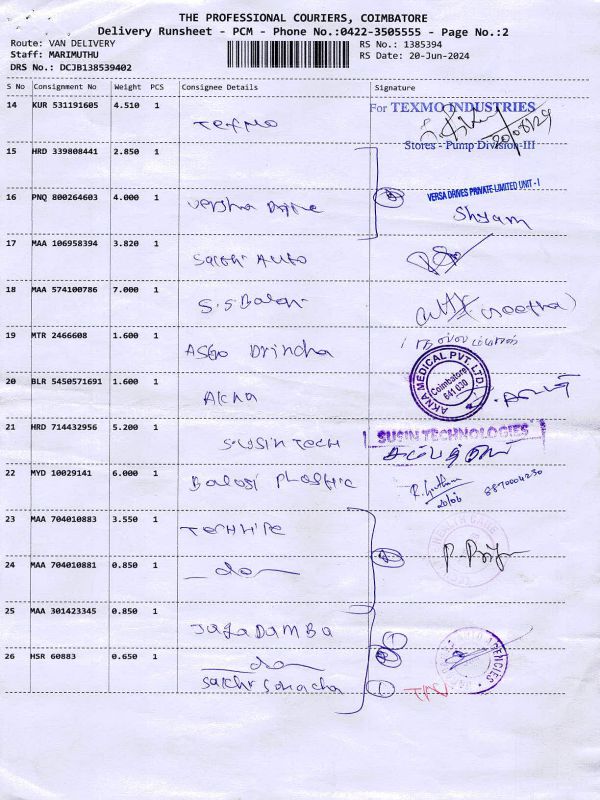 THE PROFESSIONAL COURIERS, COIMBATORE
Delivery Runsheet - PCM - Phone No.:0422-3505555 - Page No.:2
Route: VAN DELIVERY
Staff: MARIMUTHU
DRS No.: DCJB138539402
RS No.: 1385394
RS Date: 20-Jun-2024
S No Consignment No Weight PCS Consignee Details Signature
14 KUR 531191605 4.510 1 Texmo
For TEXMO INDUSTRIES
Stores - Pump Division-III
15 HRD 339808441 2.850 1
16 PNQ 800264603 4.000 1
VERSA DRIVES PRIVATE LIMITED UNIT - I
Shyam
17 MAA 106958394 3.820 1 Auto
18 MAA 574100786 7.000 1 S.S Balaji
19 MTR 2466608 1.600 1
20 BLR 5450571691 1.600 1 Akna
AKNA MEDICAL PVT. LTD.
Coimbatore
641 030
21 HRD 714432956 5.200 1 Susin Tech
SUSIN TECHNOLOGIES
22 MYD 10029141 6.000 1 Balaji Plastic
20/06 8870004230
23 MAA 704010883 3.550 1
24 MAA 704010881 0.850 1 do
25 MAA 301423345 0.850 1 JAGADAMBA
1
26 HSR 60883 0.650 1 do
1